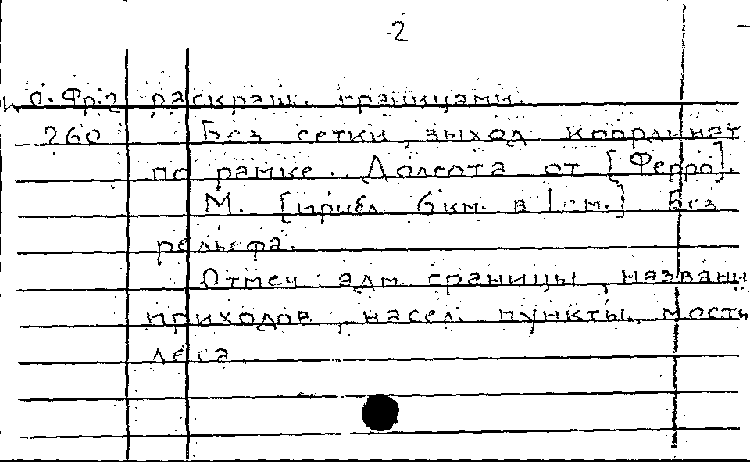 2
О. Фр. 2 раскраш. границами.
260 Без сетки, выход координат
по рамке. Долгота от [Ферро].
М. [прибл. 6 км. в 1 см.] Без
рельефа.
Отмеч. адм. границы, названи
приходов, насел. пункты, мосты
леса.